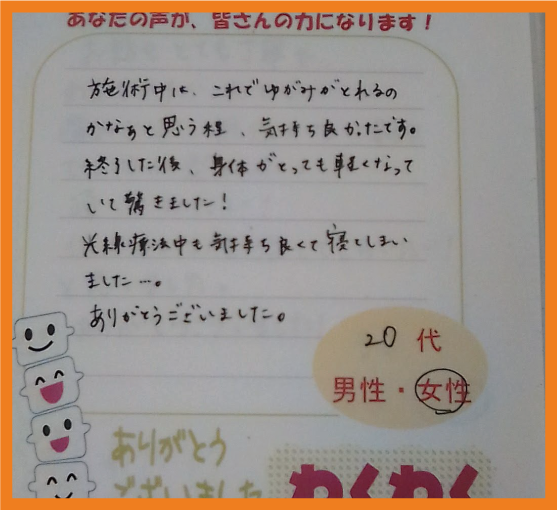 あなたの声が、皆さんの力になります！
施術中は、これでゆがみがとれるの
かなぁと思う程、気持ち良かったです。
終了した後、身体がとっても軽くなって
いて驚きました！
光線療法中も気持ち良くて寝てしまい
ました…。
ありがとうございました。
20代
男性・女性
ありがとう
ございました
わくわく